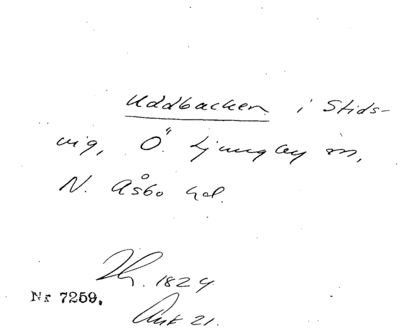 Uddbacken i Stids-
vig, Ö. Ljungby sn,
N. Åsbo hd.
1824
Nr 7259.
Ark 21.